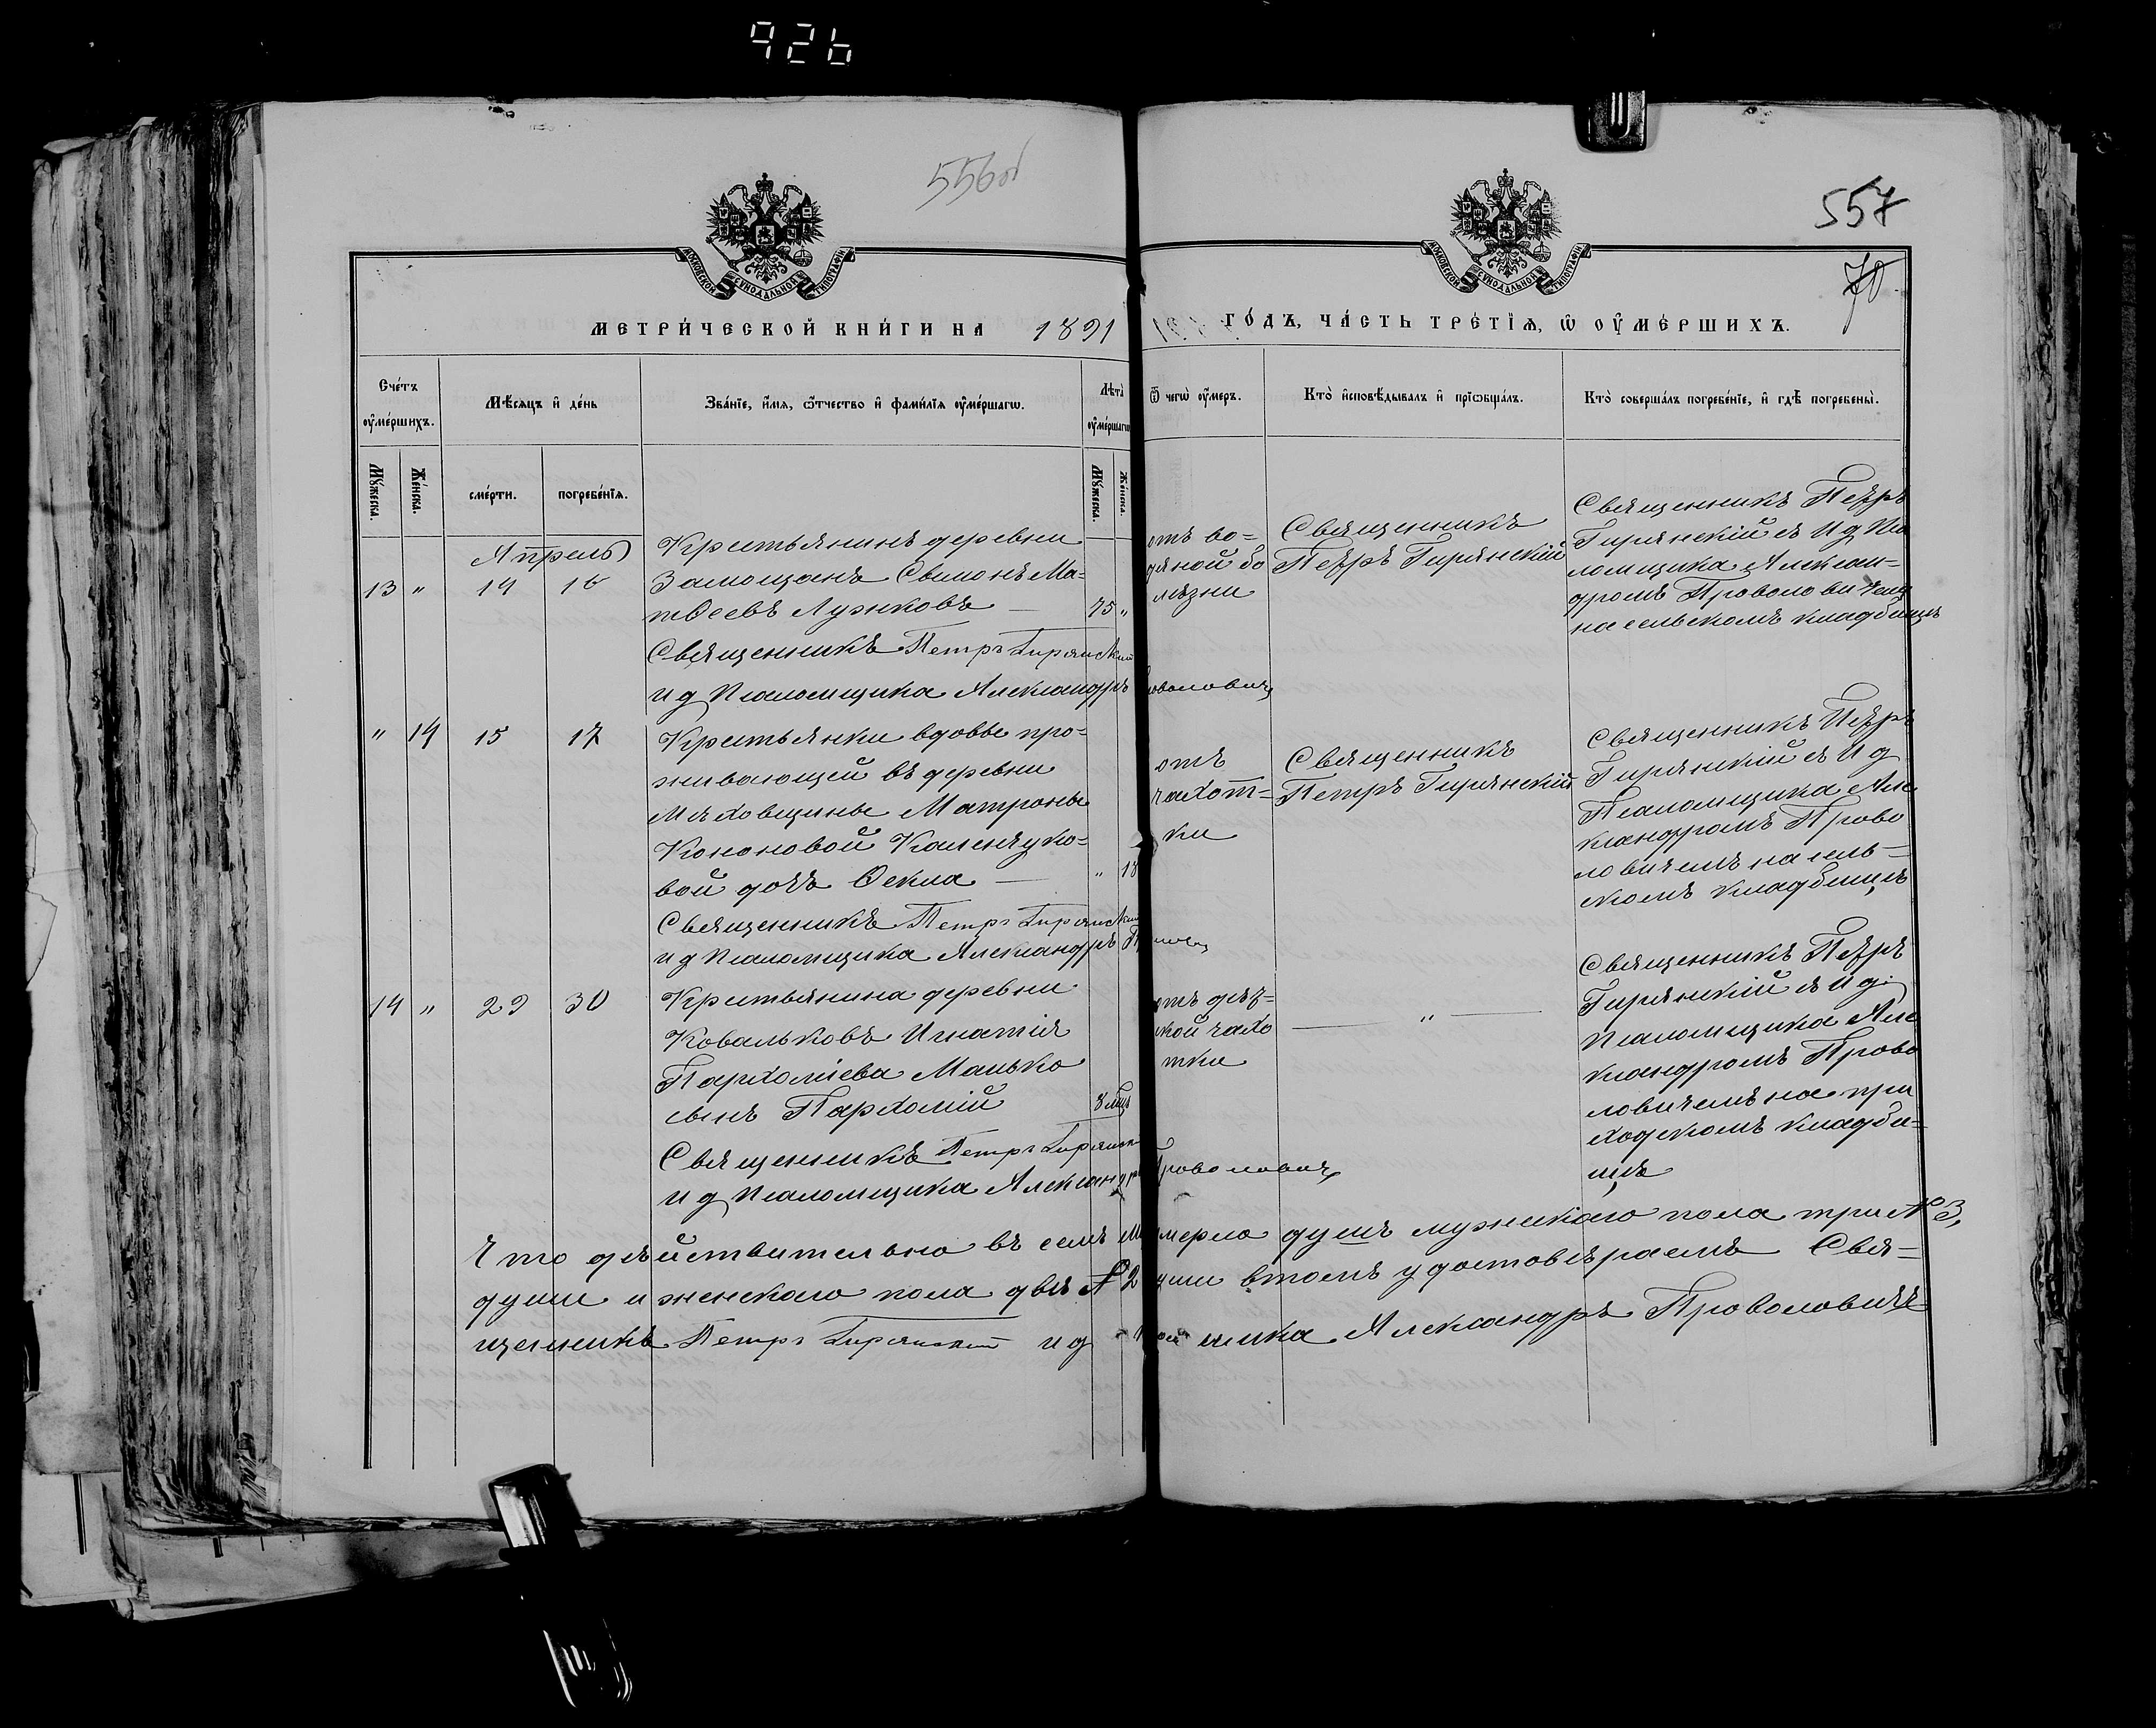 926
556об
557
70
МОСКОВСКОЙ СѴНОДАЛЬНОЙ ТИПОГРАФІИ
МОСКОВСКОЙ СѴНОДАЛЬНОЙ ТИПОГРАФІИ
МЕТРИ́ЧЕСКОЙ КНИ́ГИ НА 1891
ГО́ДЪ, ЧА́СТЬ ТРЕ́ТІѦ, Ѿ ОУ҆МЕ́РШИХЪ.
Сче́тъ оу҆ме́ршихъ.
Мѣ́сѧцъ и҆ де́нь
Зва́нїе, и҆́мѧ, ѻ҆́тчество и҆ фами́лїѧ оу҆ме́ршагѡ.
Лѣта̀ оу҆ме́ршагѡ
Ѿ чегѡ̀ оу҆́меръ.
Кто̀ и҆сповѣ́дывалъ и҆ прїѡбща́лъ.
Кто̀ соверша́лъ погребе́нїе, и҆ гдѣ̀ погребены̀.
Мꙋ́жеска.
Же́нска.
сме́рти.
погребе́нїѧ.
Мꙋ́жеска.
Же́нска.
Апрель
13 " 14 16
Крестьянинъ деревни
Замощанъ Симонъ Ма-
твеевъ Лузиковъ — 75 "
отъ во-
дяной бо
лѣзни
Священникъ
Петръ Гирянскій
Священникъ Петръ
Гирянскій съ И д Пса
ломщика Алексан-
дромъ Проволовичемъ
на сельскомъ кладбищѣ
Священникъ Петръ Гирянскій
и д Псаломщика Александръ Проволовичъ
" 14 15 17
Крестьянки вдовы про-
живающей въ деревни
Мѣховщины Матроны
Кононовой Каменяцко-
вой дочь Ѳекла — " 18
отъ
чахот-
ки
Священникъ
Петръ Гирянскій
Священникъ Петръ
Гирянскій съ И д
Псаломщика Але
ксандромъ Прово
ловичемъ на сель-
скомъ кладбищѣ
Священникъ Петръ Гирянскій
и д Псаломщика Александръ
14 " 29 30
Крестьянина деревни
Ковальковъ Игнатія
Пархоміева Манько
сынъ Пархомій 8 мцъ
отъ дѣт-
ской чахо
тки
— " —
Священникъ Петръ
Гирянскій съ И д.
Псаломщика Але
ксандромъ Прово
ловичемъ на при
ходскомъ кладби-
щѣ
Священникъ Петръ Гирянскій
и д Псаломщика Александръ Проволовичъ
Что дѣйствительно въ семъ умерло душъ мужскаго пола три № 3,
души и женскаго пола двѣ № 2 души втомъ удостовѣряемъ Свя-
щенникъ Петръ Гирянскій и д Псаломщика Александръ Проволовичъ